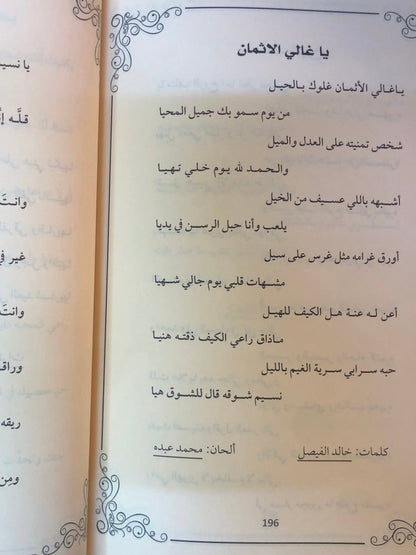 يا غالي الاثمان
ياغالي الأثمان غلوك بالحيـل
من يوم سمو بك جميل المحيا
شخص تمنيته على العدل والميل
والـحمـد لله يـوم خلـي تـهيـا
أشبهه باللي عسيف من الخيل
يلعب وأنا حبل الرسن في يديا
أورق غرامه مثل غرس على سيل
مشـهات قلبي يوم جالي شـهيا
أعن لـه عنة هـل الكيف للهيـل
ماذاق راعي الكيف ذقتـه هنيا
حبه سـرابي سـرية الغيم بالليل
نسيم شوقه قال للشوق هيا
كلمات: خالد الفيصل
ألحان: محمد عبده
196
يا نسيـ
قلّـه إنـ
وانت
غير في
وانت
وراقـ
ريقه
ومن